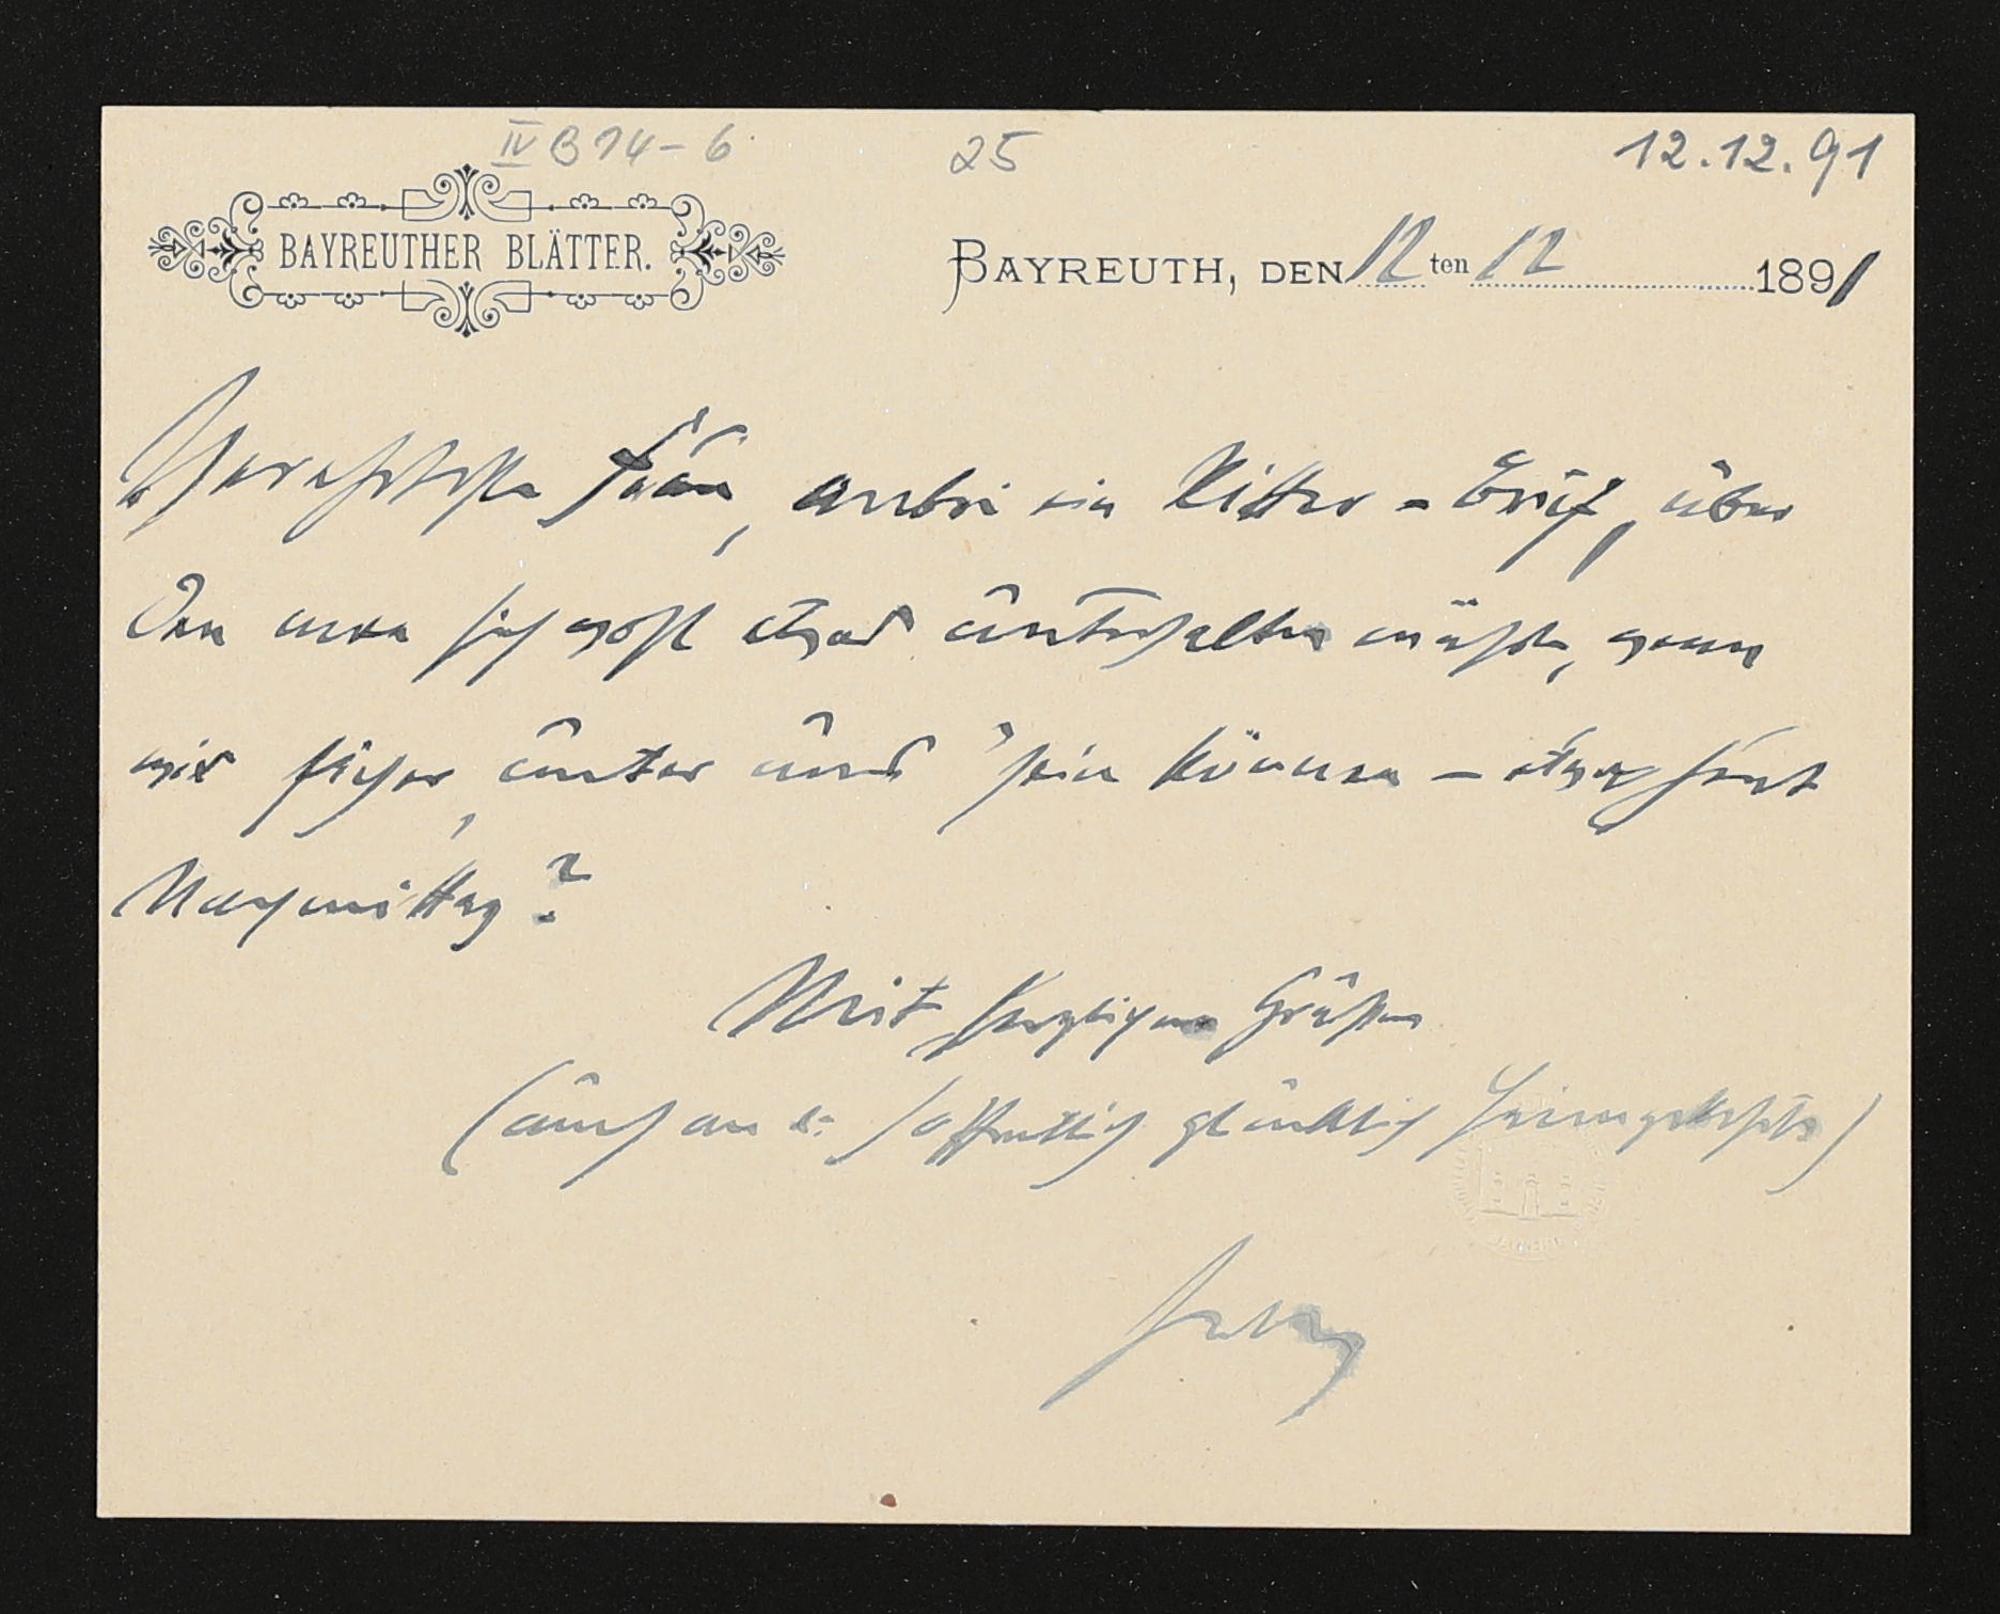 IV B 14 – 6.
25
12.12.91
BAYREUTHER BLÄTTER.
BAYREUTH, DEN 12 ten 12 1891
Verehrteste Frau, anbei ein Ritter-Brief, über
den man sich wohl etwas unterhalten müßte, wenn
wir sicher, unter uns sein können – etwa heut
Nachmittag?
Mit herzlichen Grüßen
(auch an die hoffentlich glücklich Heimgekehrte)